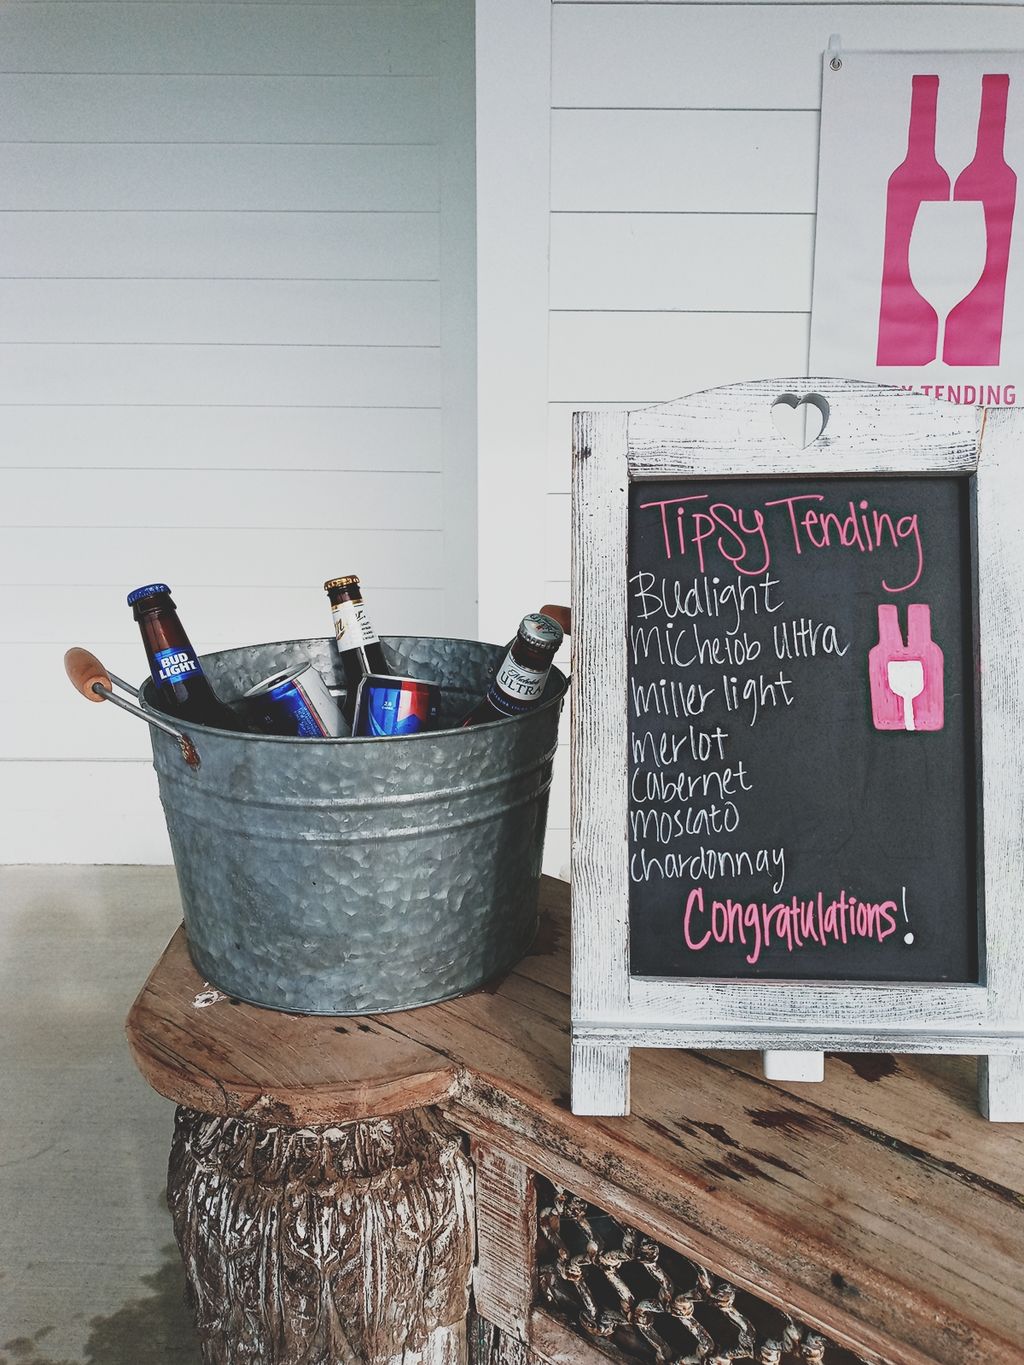 TENDING
Tipsy Tending
Budlight
Michelob ultra
miller light
merlot
Cabernet
moscato
chardonnay
Congratulations!
BUD
LIGHT
ULTRA